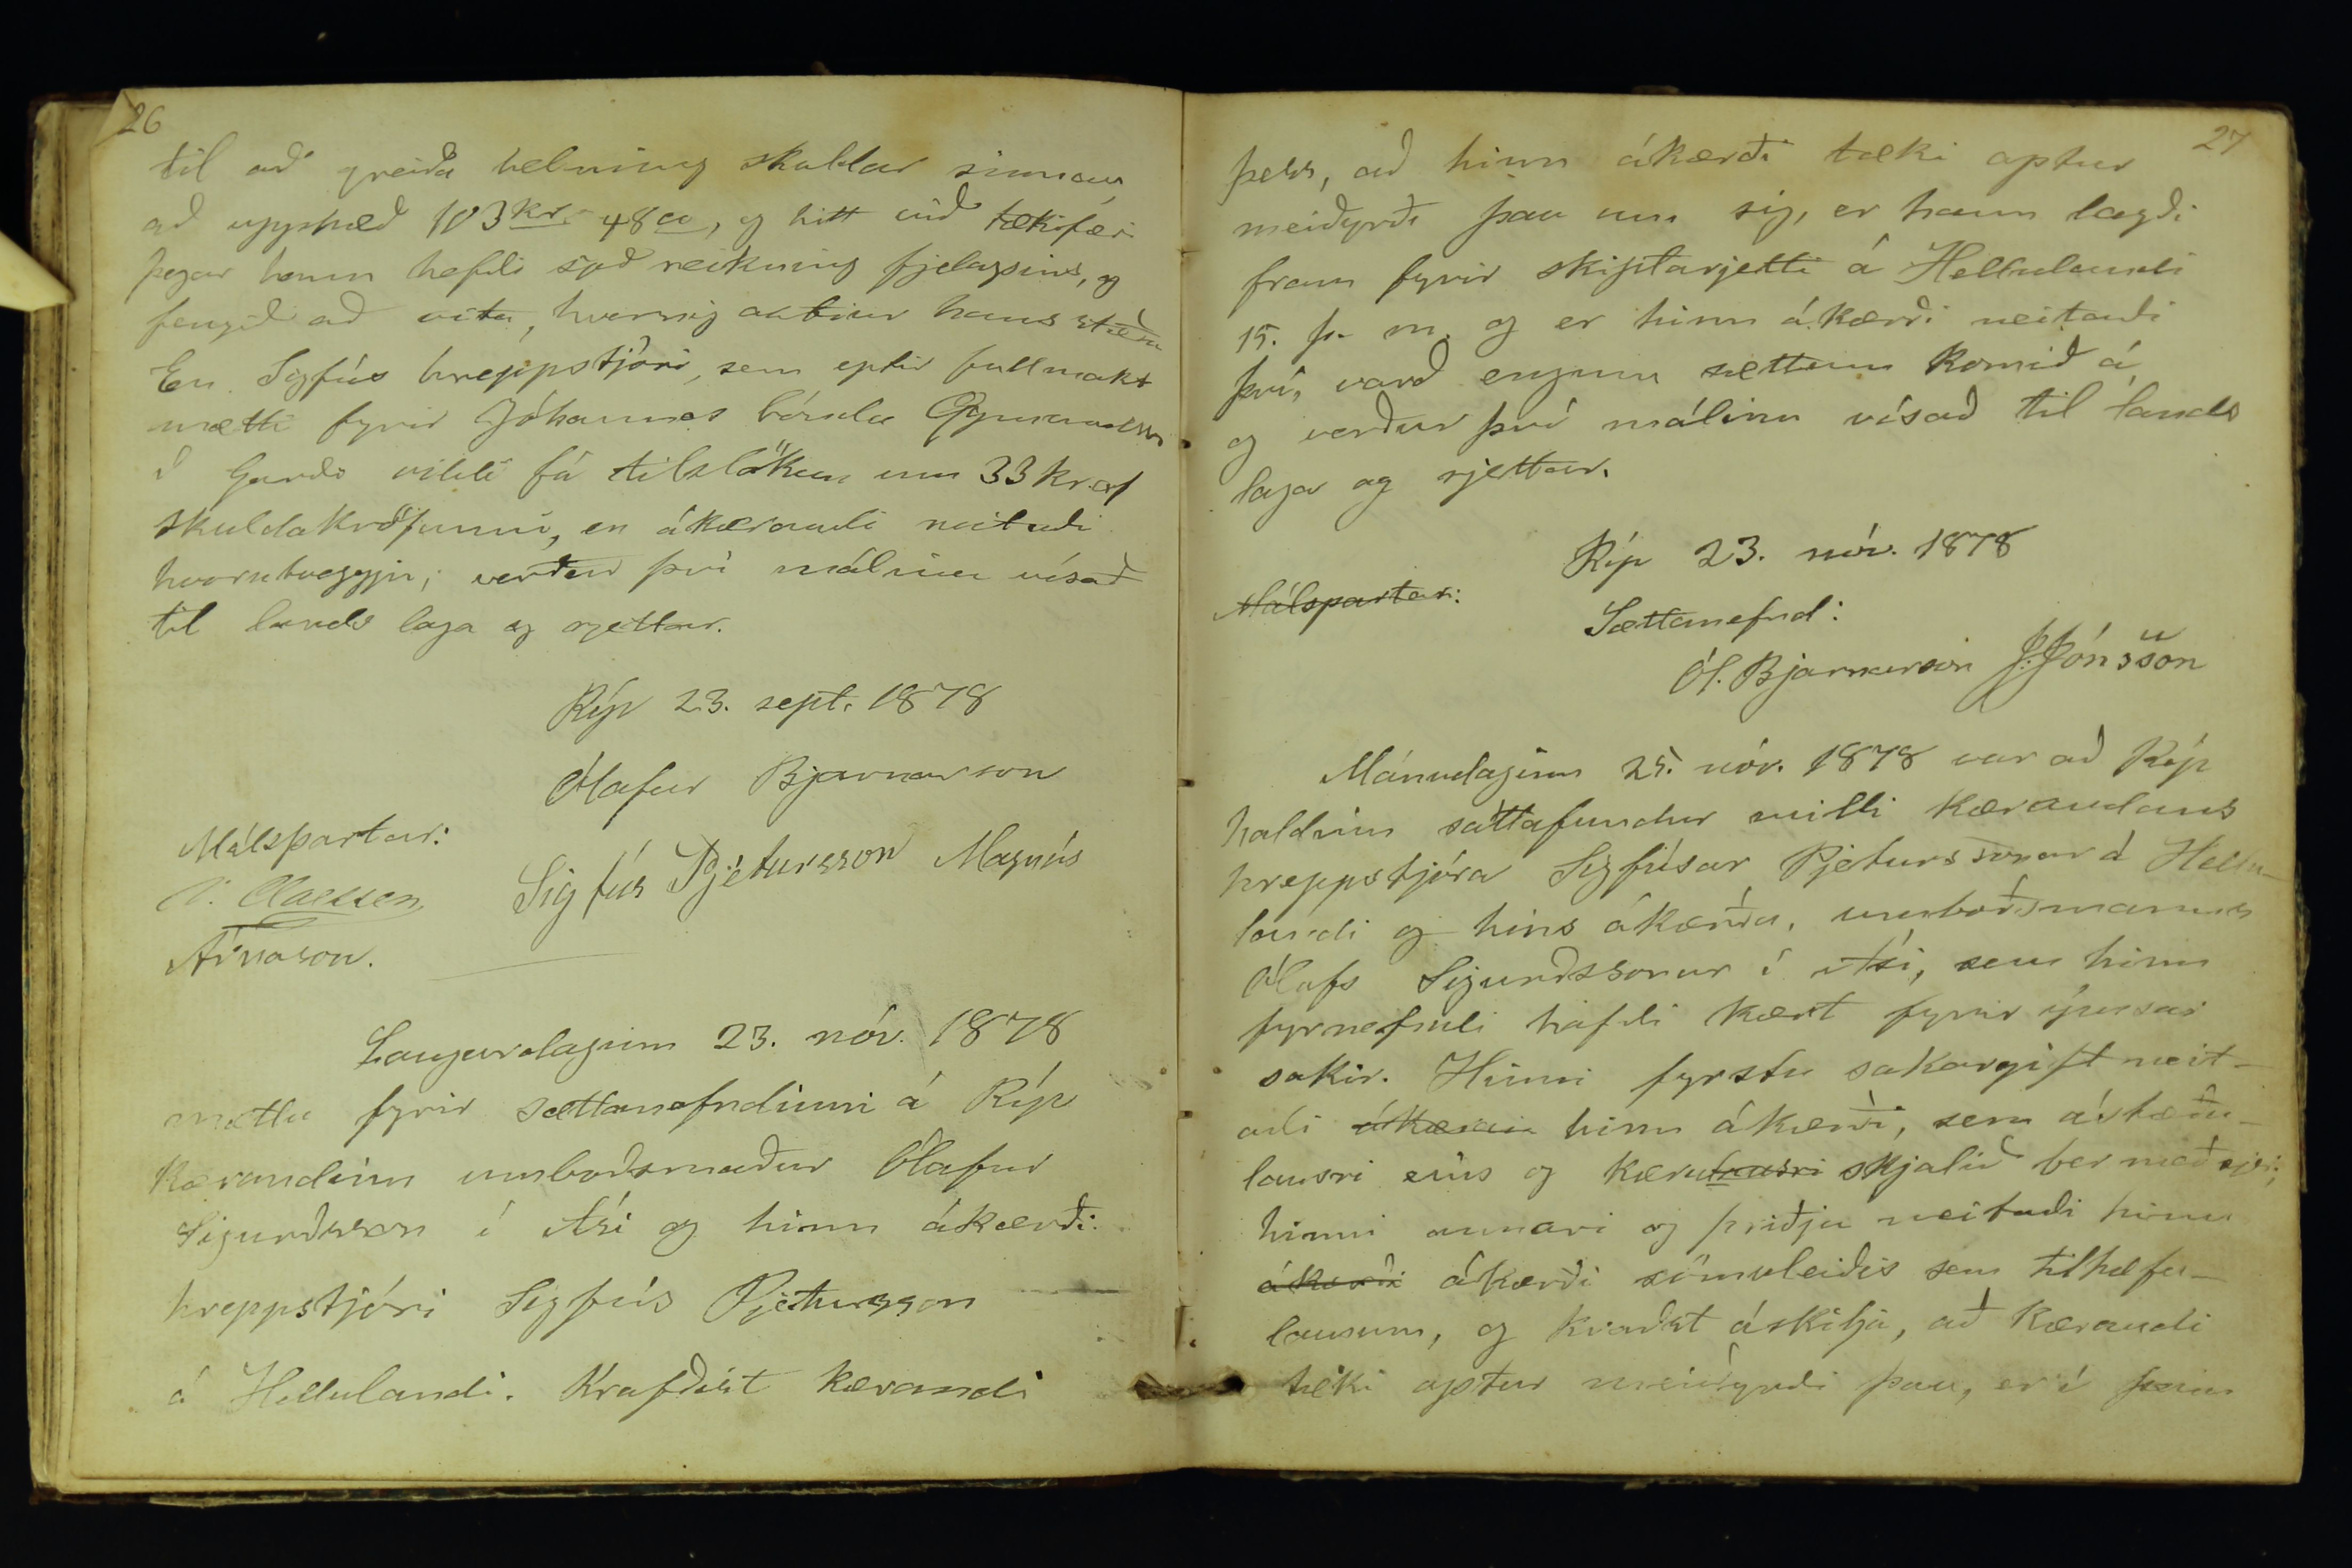 26
til að greiða helming skuldar sinnar
að upphæð 103 kr. 48 a, og hitt við tækifæri
þegar hann hefði sjeð reikning fjelagsins, og
fengið að vita, hvernig aktiur hans stæðu
En Sigfús hreppstjóri, sem eptir fullmakt
mætti fyrir Jóhannes bónda
í Garði vildi fá tilslökun um 33 kr. af
skuldakröfunni, en ákærandi neitaði
hvorutveggju; verður því málinu vísað
til lands laga og rjettar.
Ríp 23. sept. 1878
Ólafur Bjarnarson
Málspartar:
V. Claessen Sigfús Pjétursson Magnús
Árnason.
Laugardaginn 23. nóv. 1878
mættu fyrir sættanefndinni á Ríp
kærandinn umboðsmaður Ólafur
Sigurðsson í Ási og hinn ákærði
hreppstjóri Sigfús Pjetursson
á Hellulandi. Krafðist kærandi
27
þess, að hinn ákærði tæki aptur
meiðyrði þau um sig, er hann lagði
fram fyrir skiptarjetti á Hellulandi
15. þ. m. og er hinn ákærði neitaði
því, varð engum sættum komið á
og verður því málinu vísað til lands
laga og rjettar.
Ríp 23. nóv. 1878
Málspartar:
Sættanefnd:
Ól. Bjarnarson J. Jónsson
Mánudaginn 25. nóv. 1878 var að Ríp
haldinn sáttafundur milli kærandans
hreppstjóra Sigfúsar Pjeturssonar á Hellu-
landi og hins ákærða, umboðsmanns
Ólafs Sigurðssonar í Ási, sem hinn
fyrnefndi hafði kært fyrir ýmsar
sakir. Hinni fyrstu sakargift neit-
aði hinn ákærði, sem ástæðu-
lausri eins og kæruskjalið ber með sjer;
hinni annari og þriðju neitaði hinn
ákærði ákærði sömuleiðis sem tilhæfu-
lausum, og kvaðst áskilja, að kærandi
tæki aptur meiðyrði þau, er í